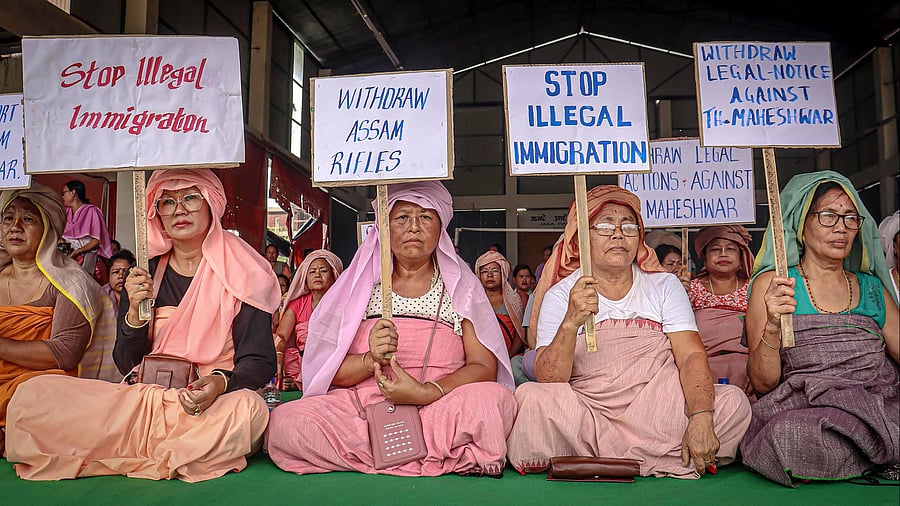 Stop Illegal
Immigration
WITHDRAW
ASSAM
RIFLES
STOP
ILLEGAL
IMMIGRATION
WITHDRAW
LEGAL-NOTICE
AGAINST
TH. MAHESHWAR
LEGAL
ACTIONS AGAINST
MAHESHWAR